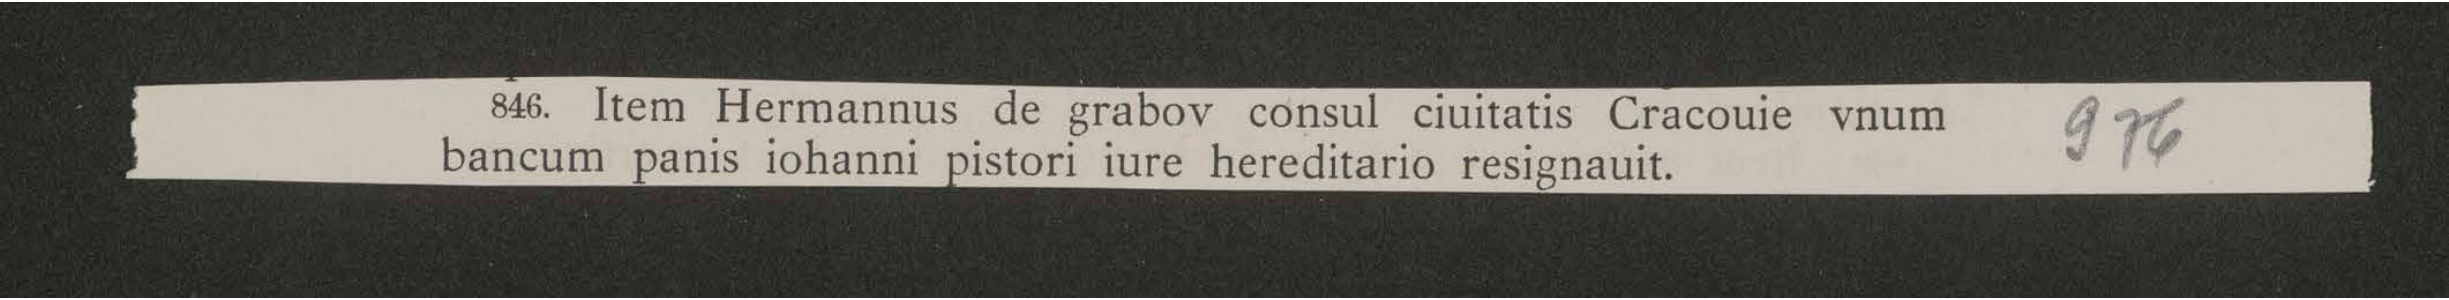 846. Item Hermannus de grabov consul ciuitatis Cracouie vnum 976
bancum panis iohanni pistori iure hereditario resignauit.